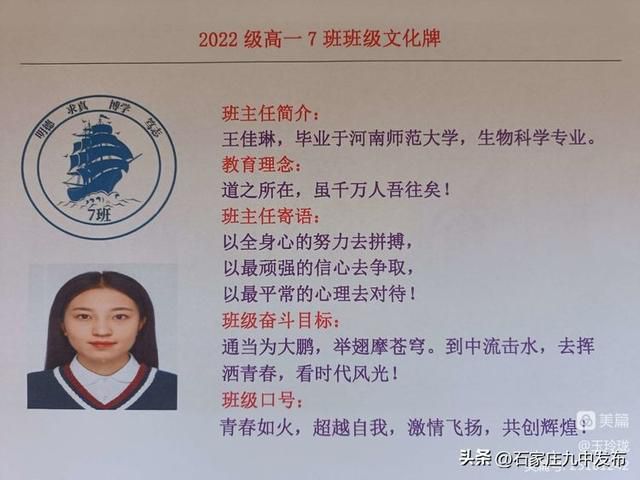 2022 级高一 7 班班级文化牌
明德 求真 博学 笃志
7班
班主任简介：
王佳琳，毕业于河南师范大学，生物科学专业。
教育理念：
道之所在，虽千万人吾往矣！
班主任寄语：
以全身心的努力去拼搏，
以最顽强的信心去争取，
以最平常的心理去对待！
班级奋斗目标：
通当为大鹏，举翅摩苍穹。到中流击水，去挥
洒青春，看时代风光！
班级口号：
青春如火，超越自我，激情飞扬，共创辉煌！
美篇
@玉玲珑
头条 @石家庄九中发布